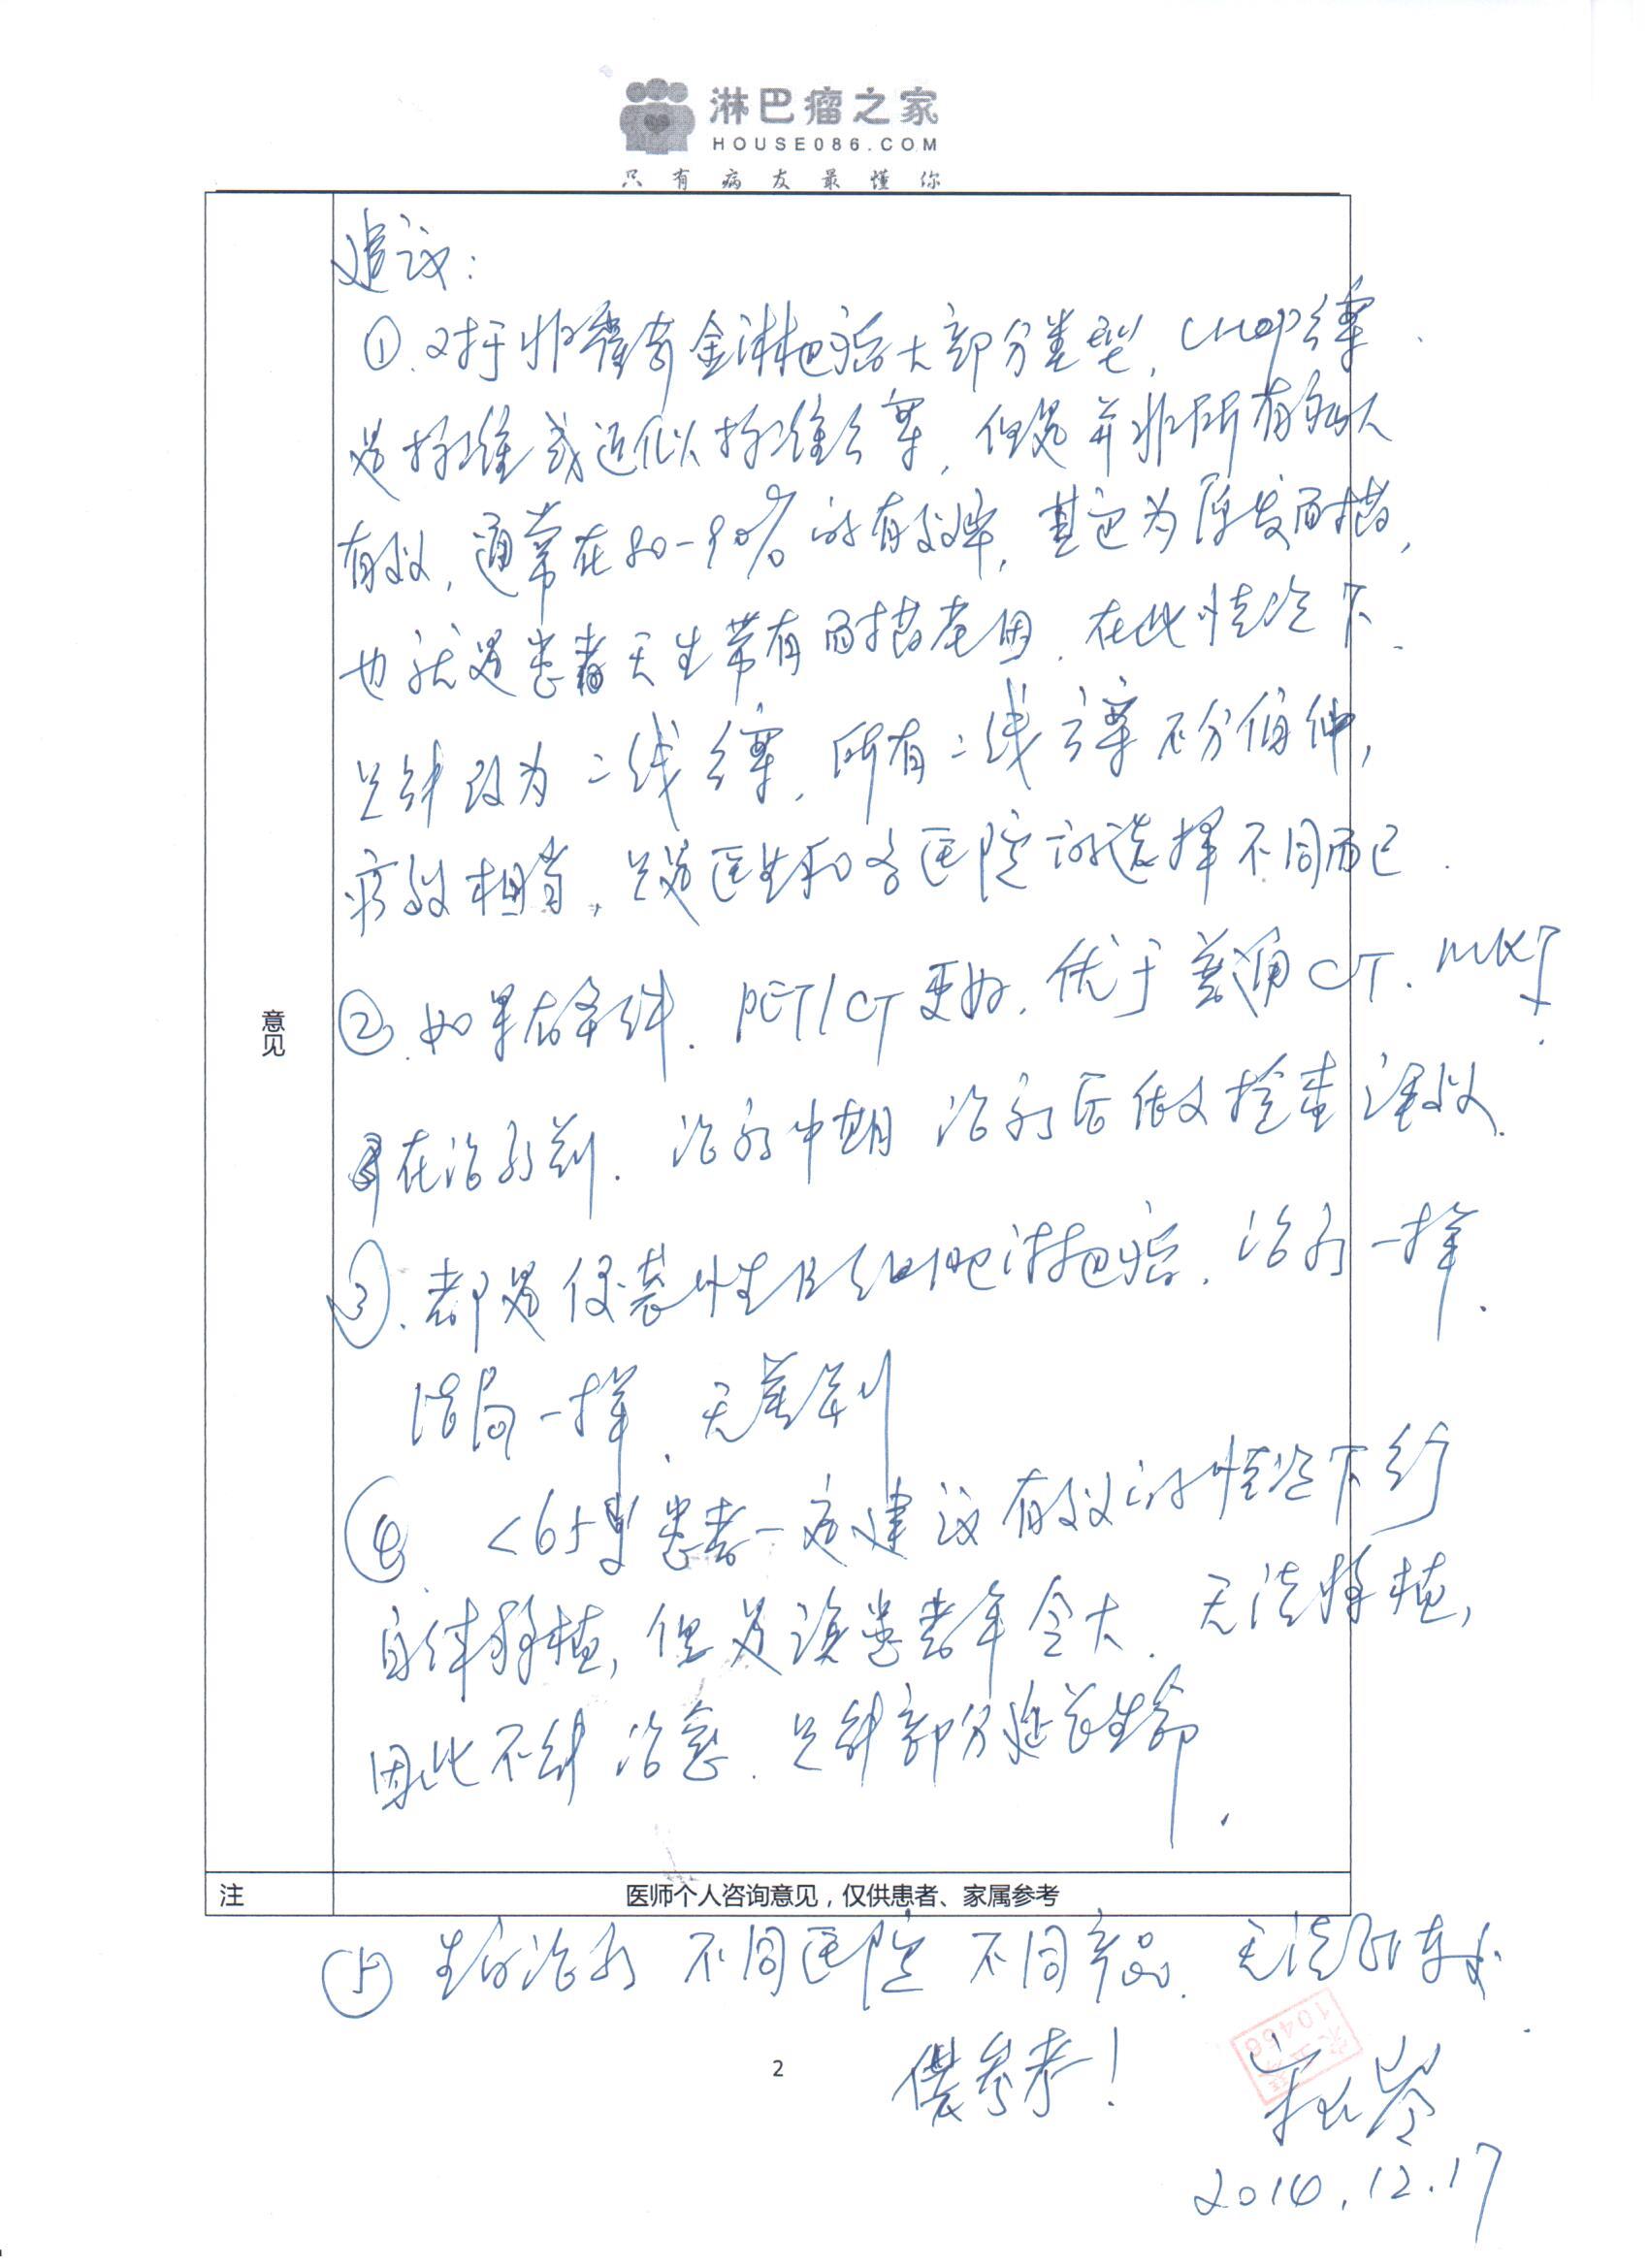 淋巴瘤之家
HOUSE086.COM
只有病友最懂你
建议:
①.对于非霍奇金淋巴瘤大部分类型,CHOP方案
是标准或近似标准方案,但是并非所有病人
有效,通常在80-90%的有效率,其它为原发耐药,
也就是患者天生带有耐药基因.在此情况下
只能改为二线方案,所有二线方案不分伯仲,
疗效相当.只是医生和各医院的选择不同而已.
意见
②.如果有条件.PET/CT更好.优于普通CT.MRI.
在治疗前.治疗中期 治疗后做检查 疗效.
③.都是侵袭性B细胞淋巴瘤.治疗一样.
结局一样.无差别
④ <65岁患者一定建议有效的情况下行
自体移植,但是该患者年令大.无法移植,
因此不能治愈.只能部分延长生命.
注
医师个人咨询意见,仅供患者、家属参考
⑤ 生物治疗 不同医院 不同产品.无法
供参考!
2
10466
2014.12.17